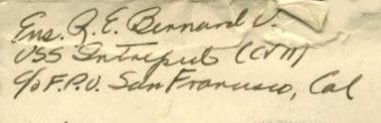 Ens. R. E. Bernard Jr.
USS Intrepid (CV11)
c/o F.P.O. San Francisco, Cal